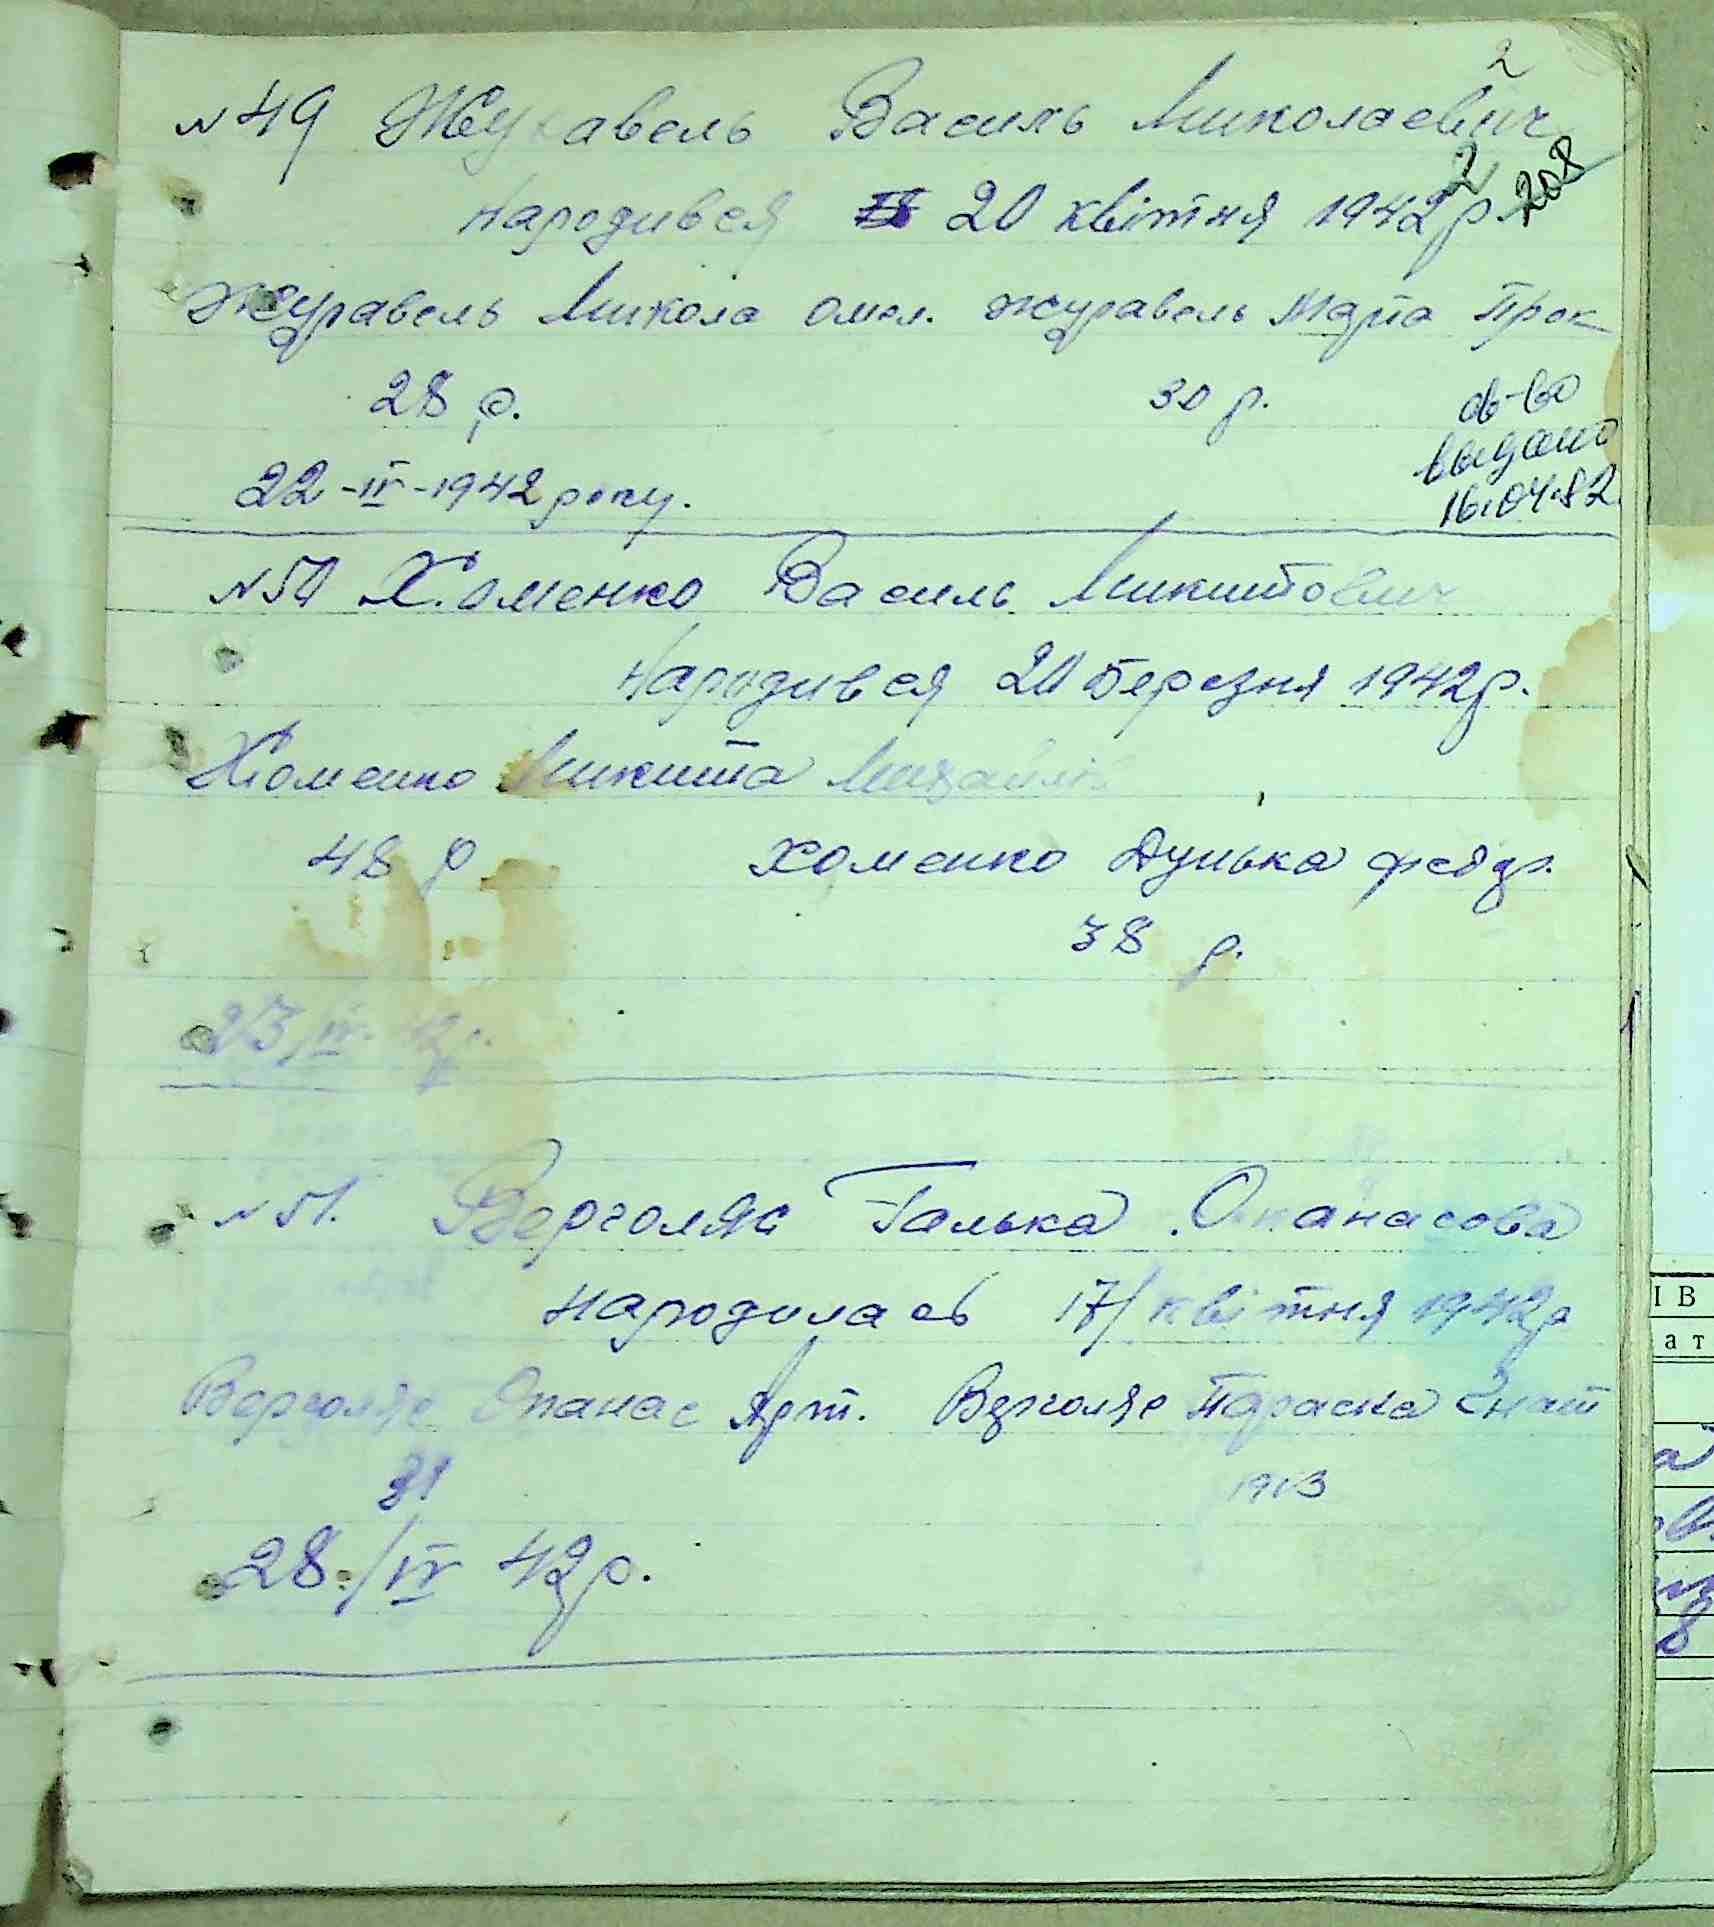 2
№ 49 Журавель Василь Миколаевич
2 208
Народився 20 квітня 1942р.
Журавель Микола Омел. Журавель Марта Прок
28 р. 30 р. св-во
выдано
22-IV-1942 року. 16.04.82
№ 50 Хоменко Василь Микитович
Народився 20 березня 1942р.
Хоменко Микита Михайлов
48 р Хоменко Дунька Федр.
38 р.
23/IV. 42р.
№ 51. Верголяс Галька Опанасова
Народилась 17/ квітня 1942р
Верголяс Опанас Арт. Верголяс Параска Гнат
31 1913
28./IV 42р.
ІВ
ат
а
8